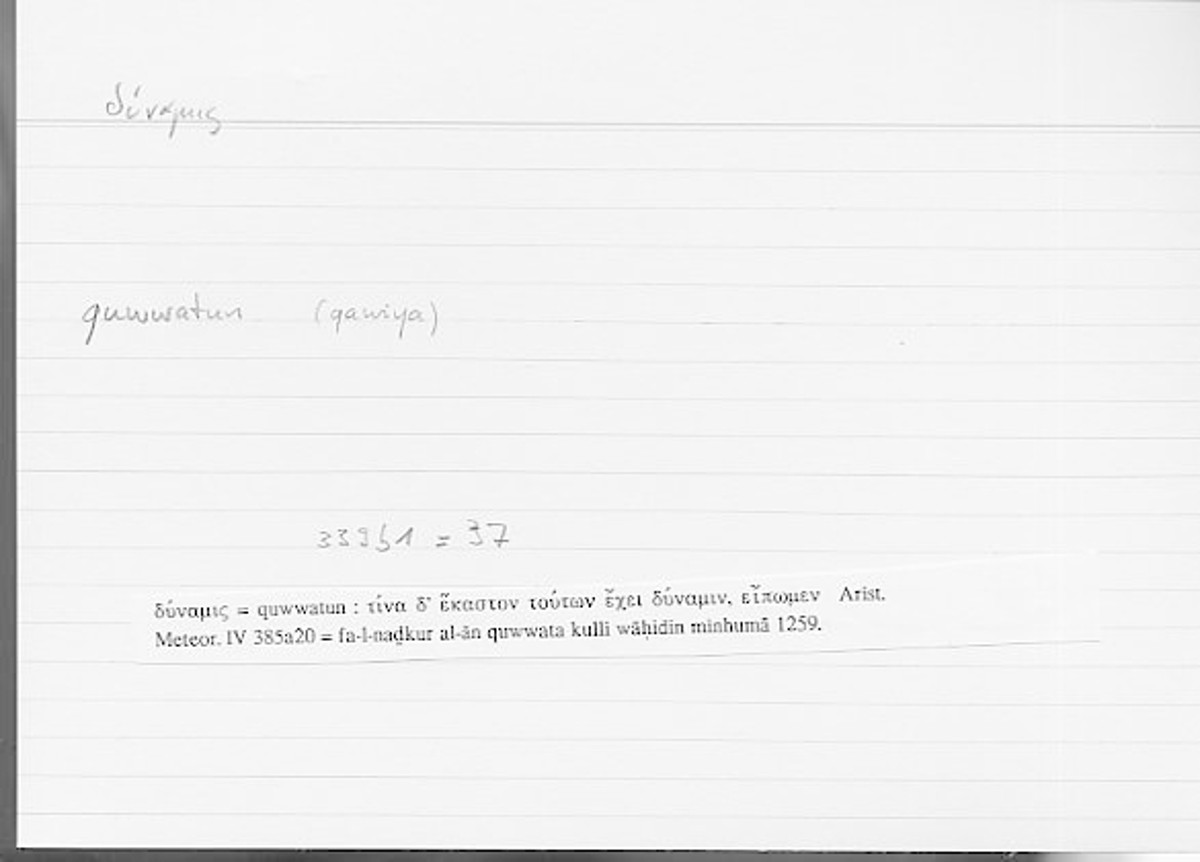 δύναμις
quwwatun (qawiya)
33951 = 37
δύναμις = quwwatun : τίνα δ' ἕκαστον τούτων ἔχει δύναμιν, εἴπωμεν Arist.
Meteor. IV 385a20 = fa-l-naḏkur al-ān quwwata kulli wāḥidin minhumā 1259.